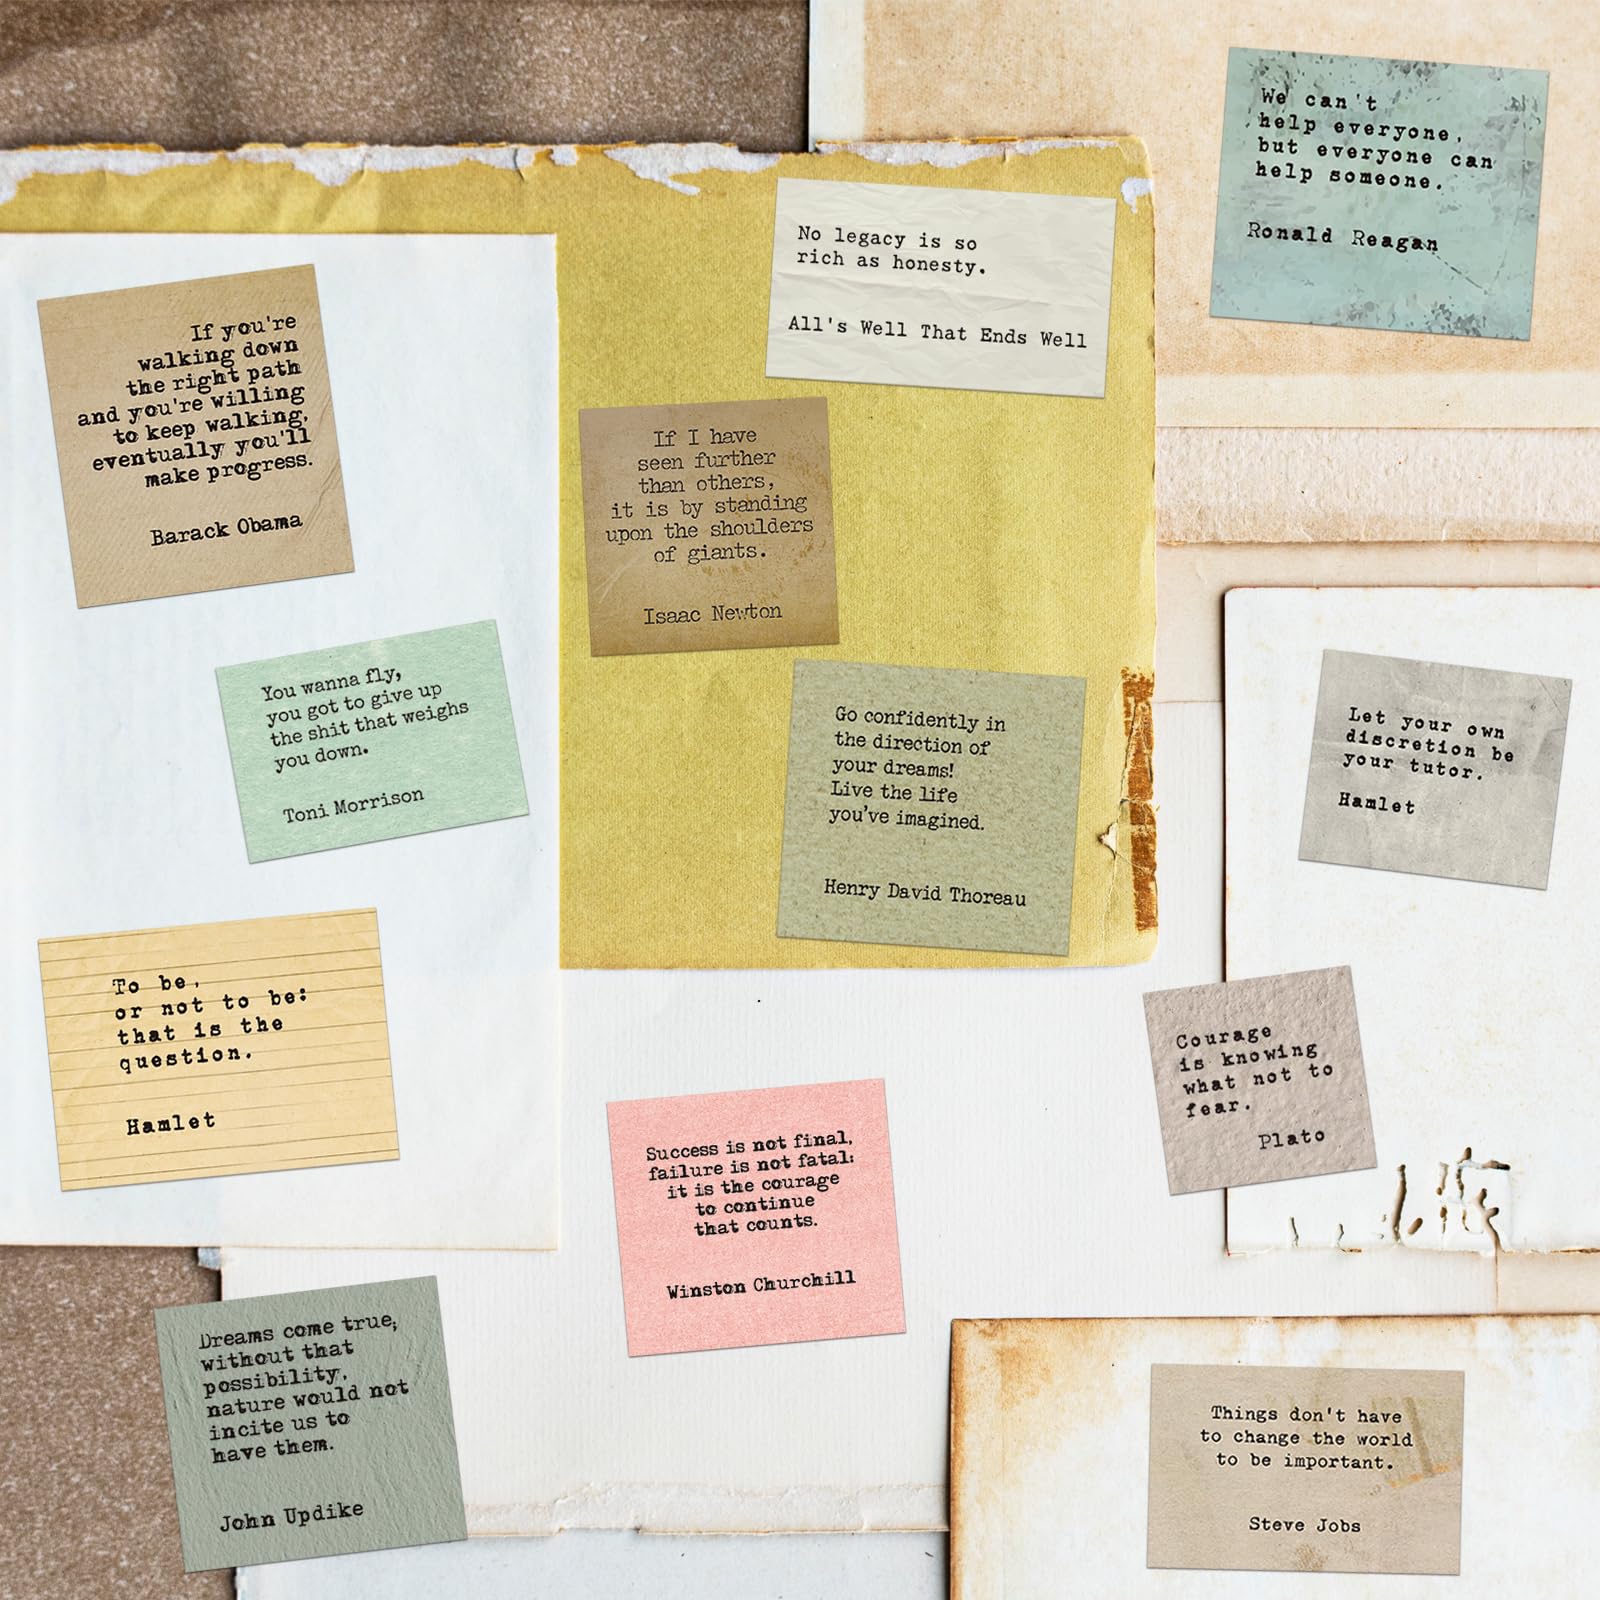 We can't
help everyone,
but everyone can
help someone.
Ronald Reagan
No legacy is so
rich as honesty.
All's Well That Ends Well
If you're
walking down
the right path
and you're willing
to keep walking,
eventually you'll
make progress.
Barack Obama
If I have
seen further
than others,
it is by standing
upon the shoulders
of giants.
Isaac Newton
You wanna fly,
you got to give up
the shit that weighs
you down.
Toni Morrison
Go confidently in
the direction of
your dreams!
Live the life
you've imagined.
Henry David Thoreau
Let your own
discretion be
your tutor.
Hamlet
To be,
or not to be:
that is the
question.
Hamlet
Courage
is knowing
what not to
fear.
Plato
Success is not final,
failure is not fatal:
it is the courage
to continue
that counts.
Winston Churchill
Dreams come true;
without that
possibility,
nature would not
incite us to
have them.
John Updike
Things don't have
to change the world
to be important.
Steve Jobs